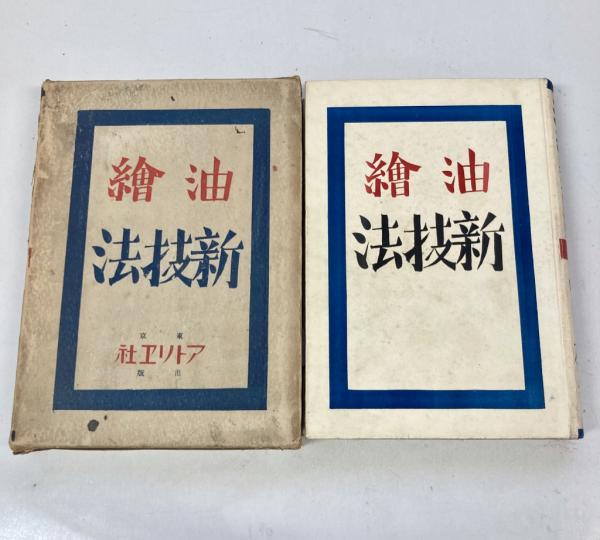 油繪
新技法
東京
アトリヱ社
出版
油繪
新技法